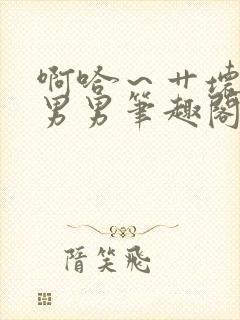 啊哈⌒艹壞
男男筆趣閣
隋笑飛